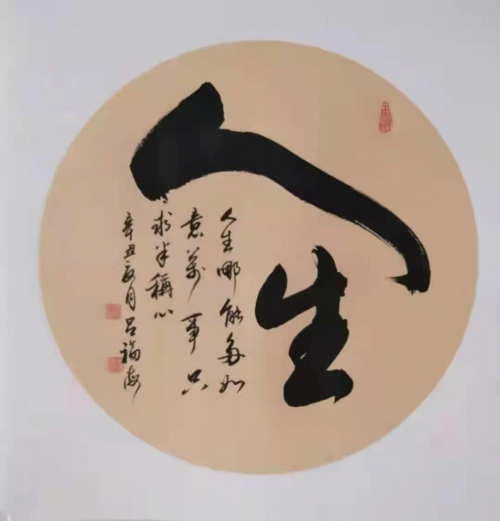 人生
人生哪能多如
意萬事只
求半稱心
辛丑夏月吕福海